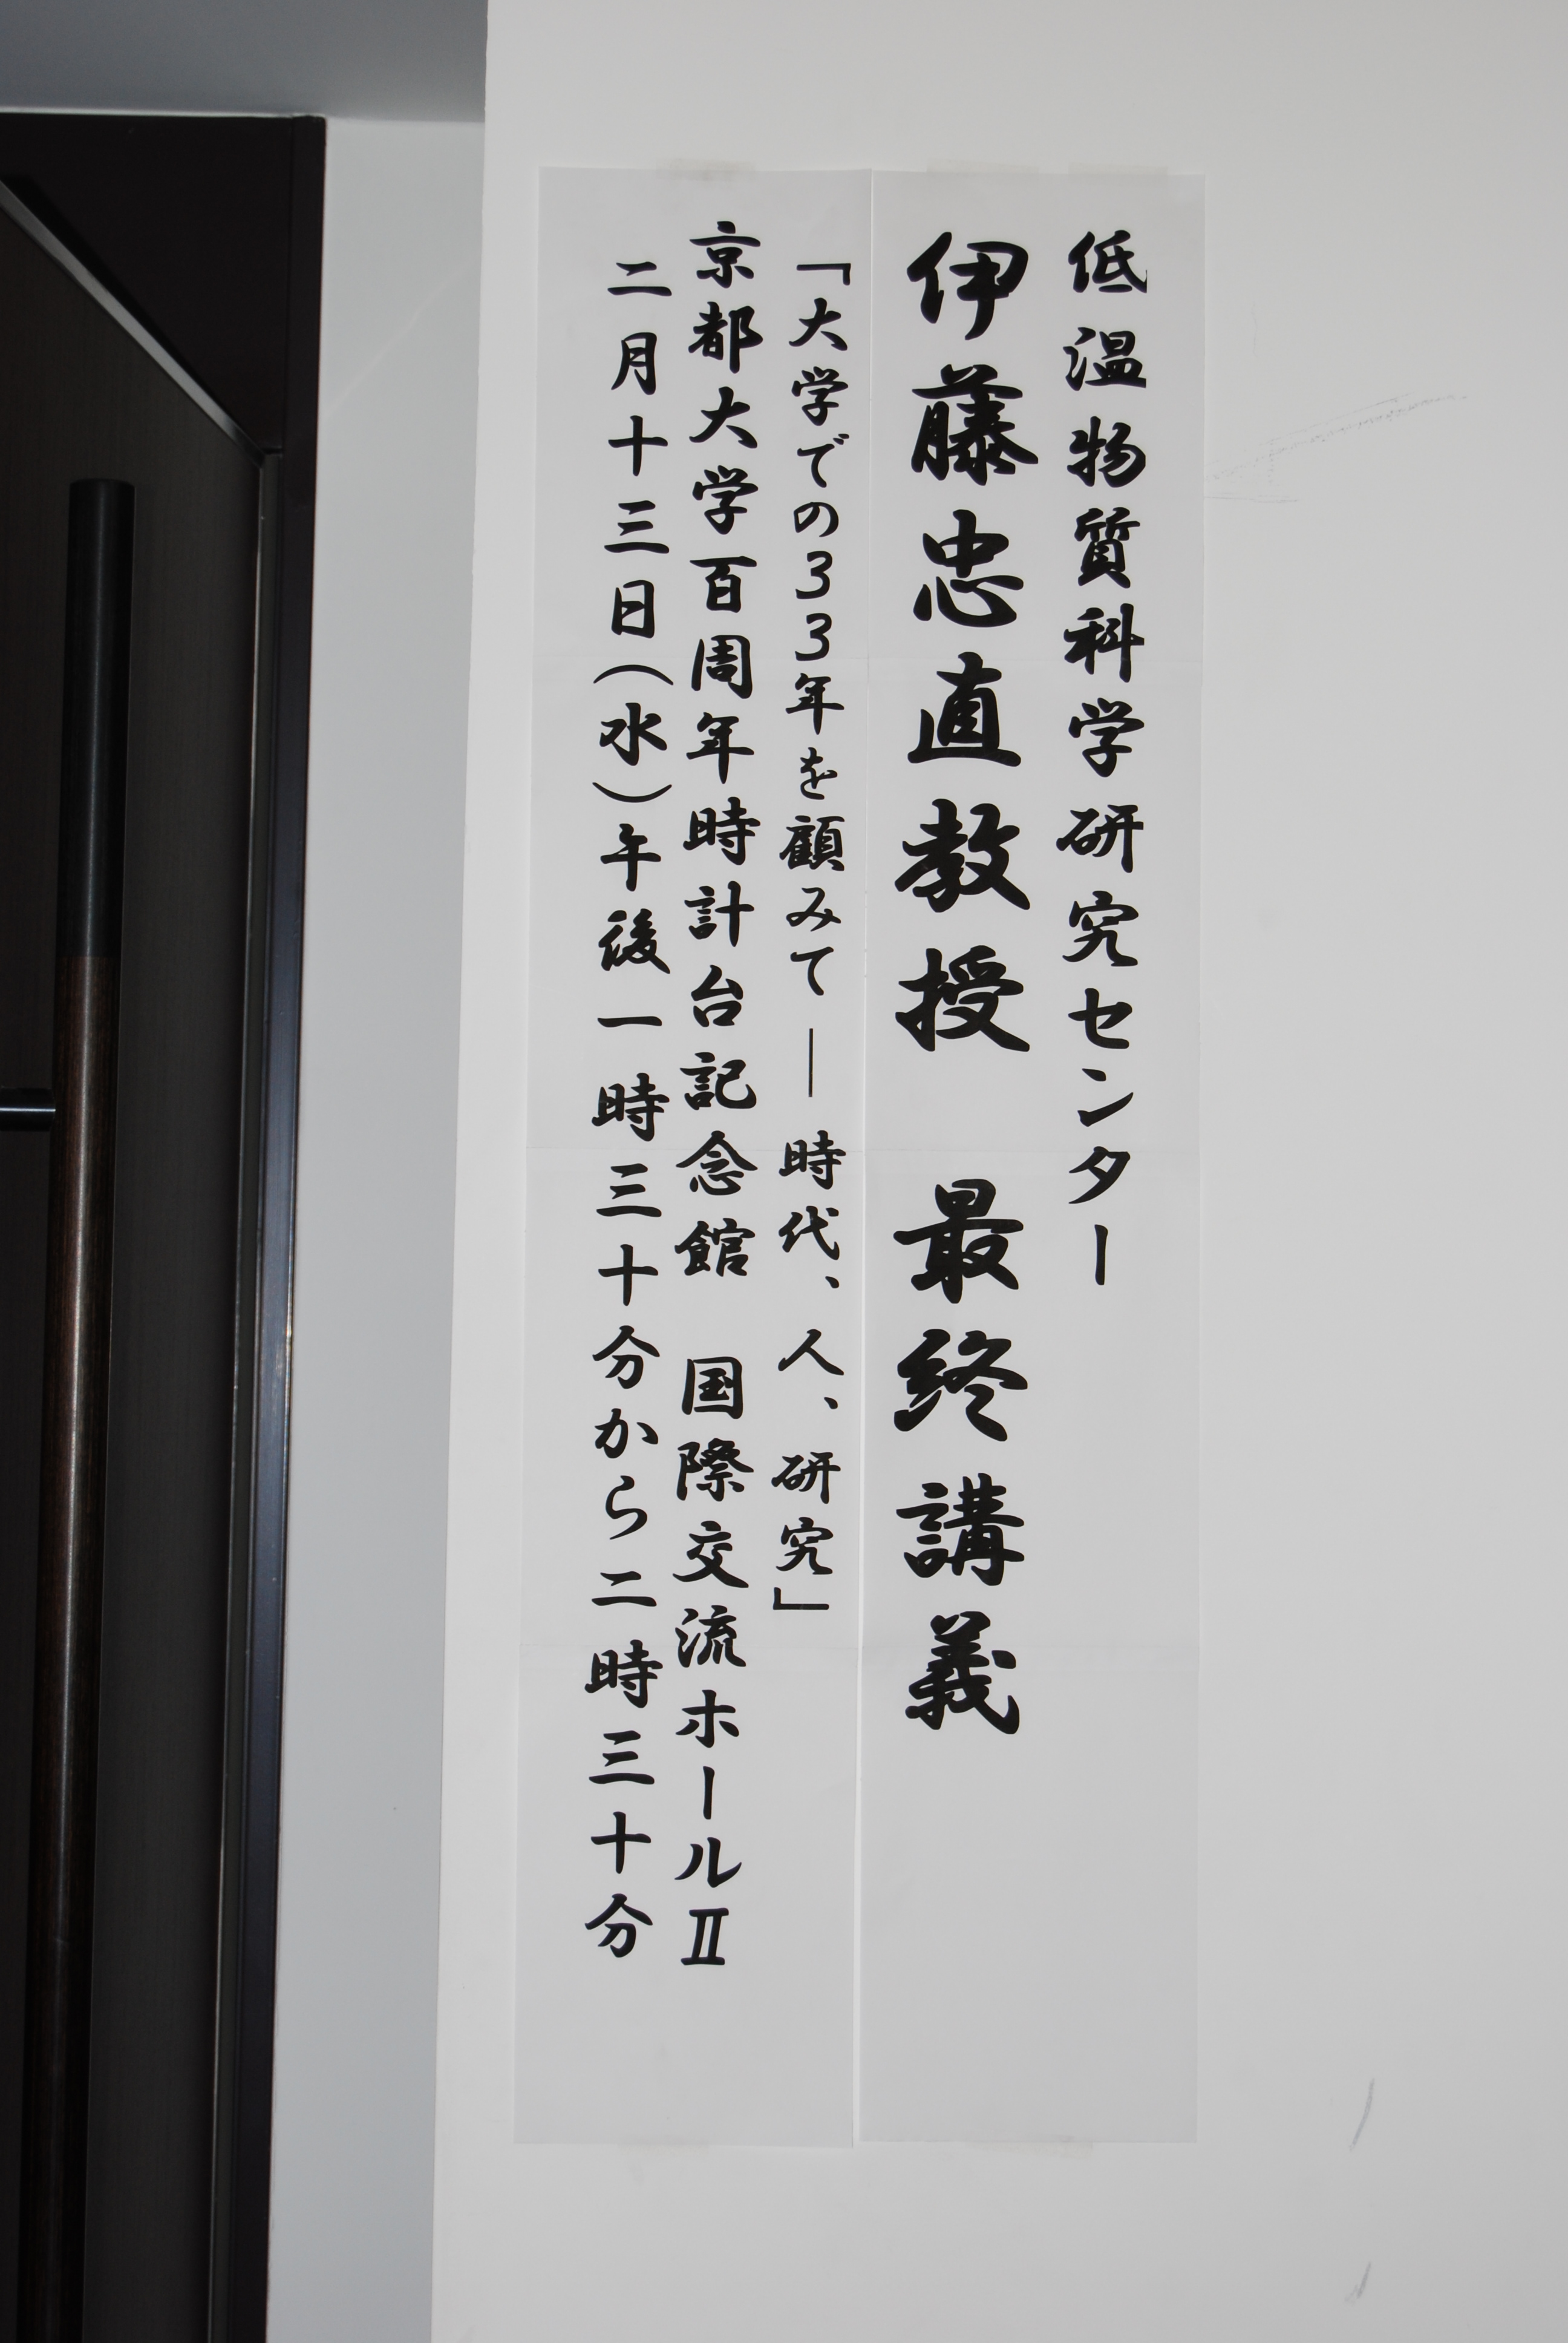 低温物質科学研究センター
伊藤忠直教授　最終講義
「大学での３３年を顧みて ― 時代、人、研究」
京都大学百周年時計台記念館　国際交流ホールⅡ
二月十三日（水）午後一時三十分から二時三十分